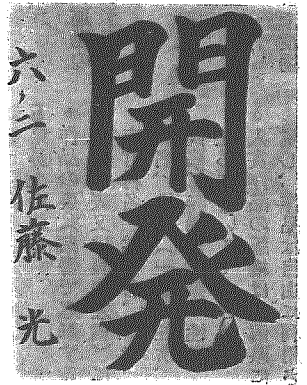 開発
六ノ二 佐藤 光